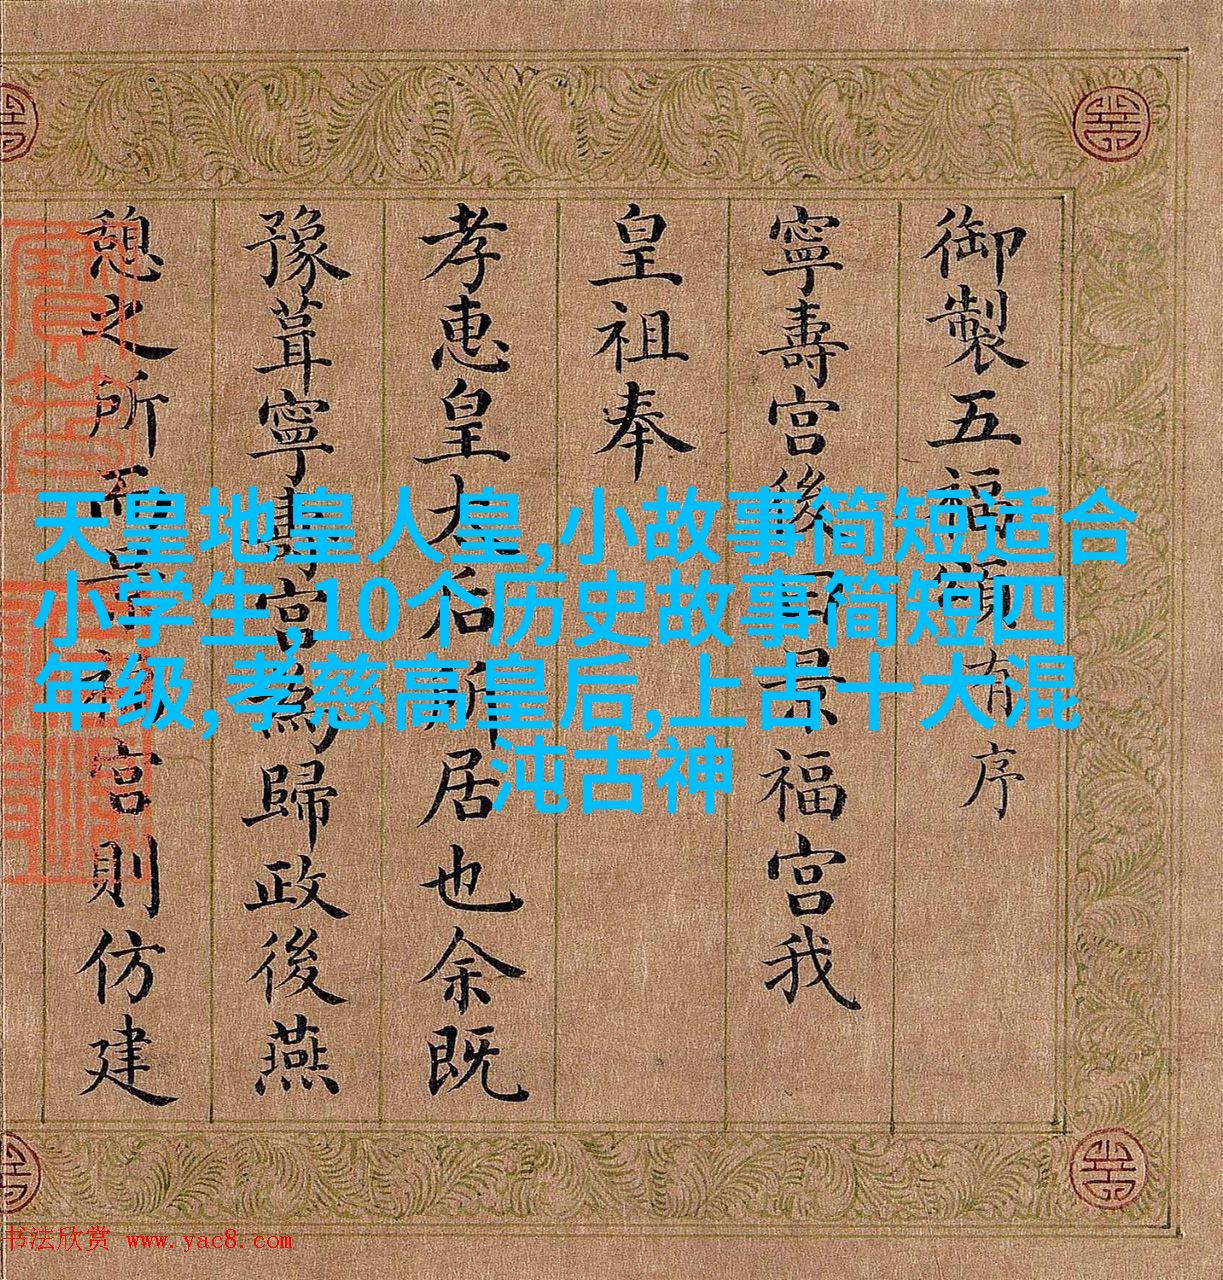 御製五福頌有序
寧壽宮後曰景福宮我
皇祖奉
孝惠皇太后所居也余既
豫葺寧壽宮為歸政後燕
憩之所而景福宮則仿建
天皇地皇人皇,小故事简短适合
小学生,10个历史故事简短四
年级,孝慈高皇后,上古十大混
沌古神
书法欣赏 www.yac8.com